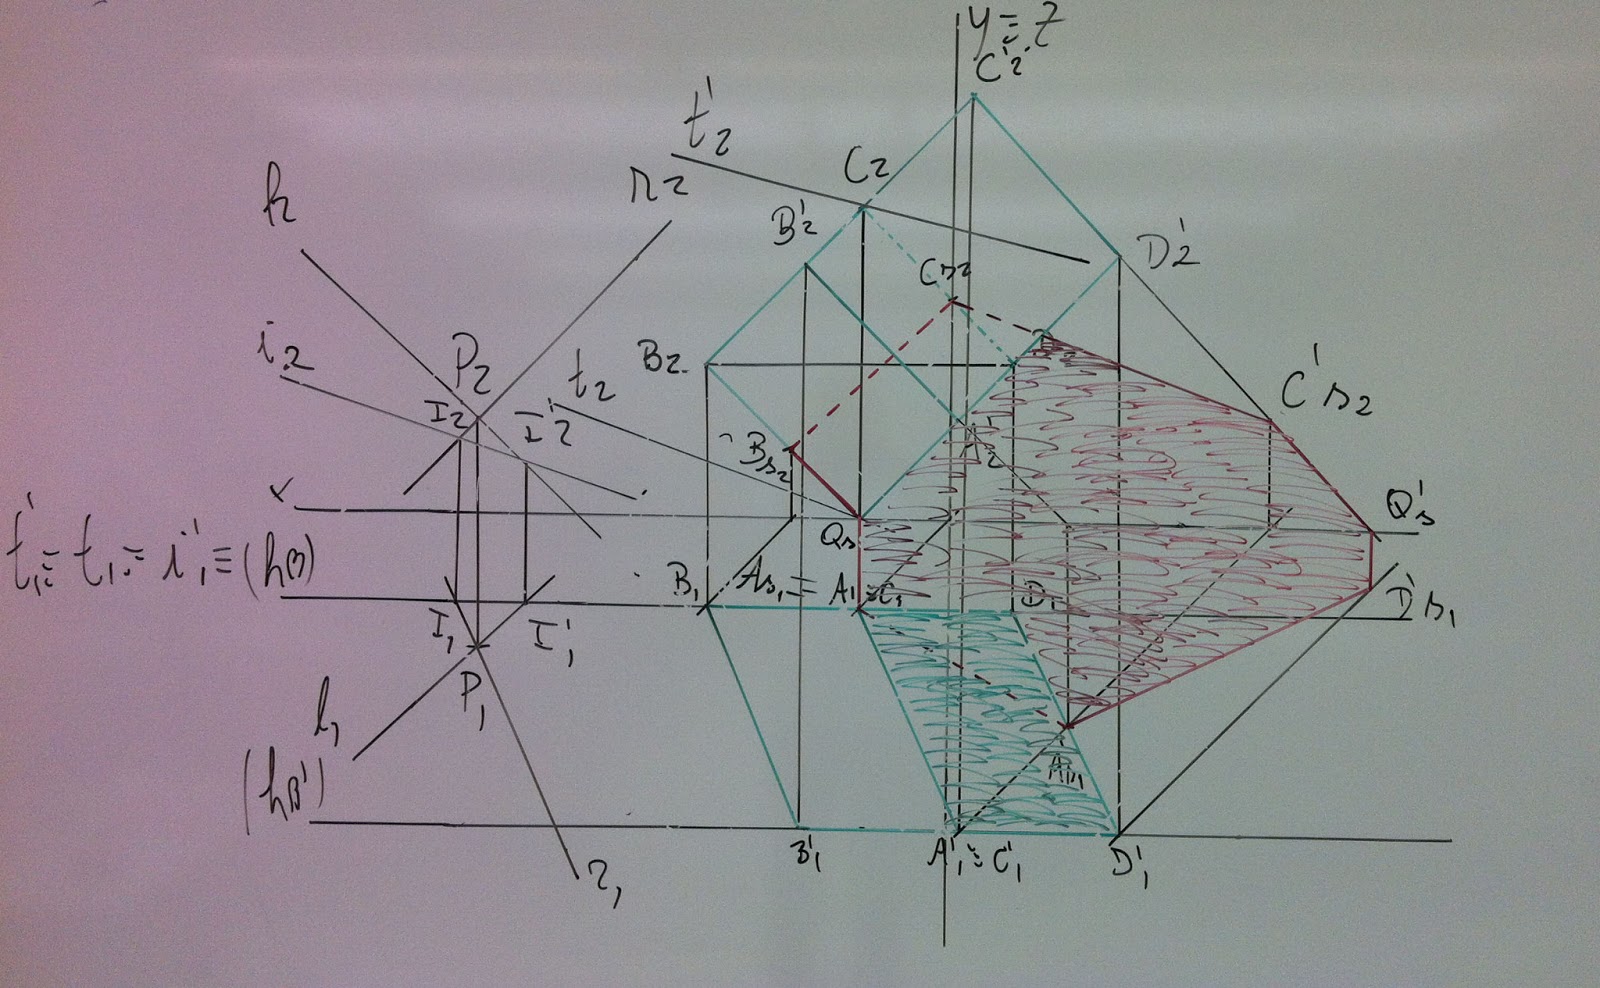 y≡z
C'2
t'2
r2
C2
B'2
D'2
h
Cs2
i2
P2
B2
t2
I2
I'2
C's2
A'2
Bs2
x
Q's
Qs
t'1≡t1≡i'1≡(hβ)
B1
As1≡A1≡C1
D1
D's1
I1
I'1
P1
l1
(hβ')
B'1
A'1≡C'1
D'1
r1